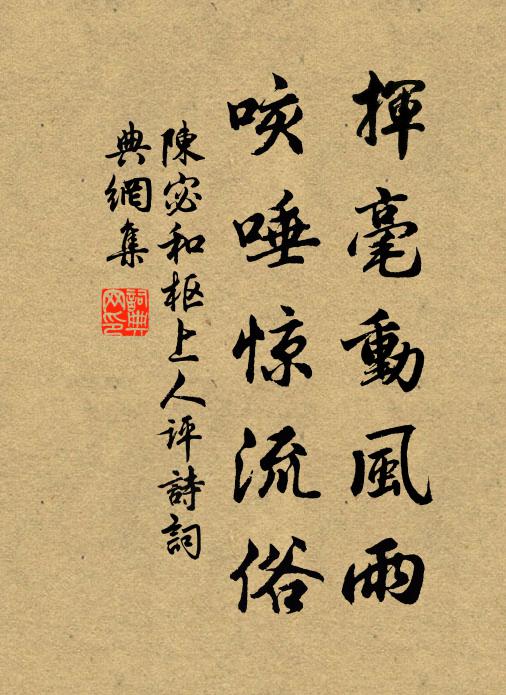 揮毫動風雨
咳唾惊流俗
陳宓和枢上人评詩詞
典網集
詞典
网印